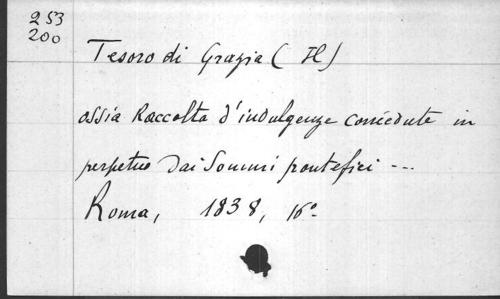 253
200
Tesoro di Grazia (Il)
ossia Raccolta d'indulgenze concedute in
perpetuo dai Sommi pontefici ---
Roma, 1838, 16º